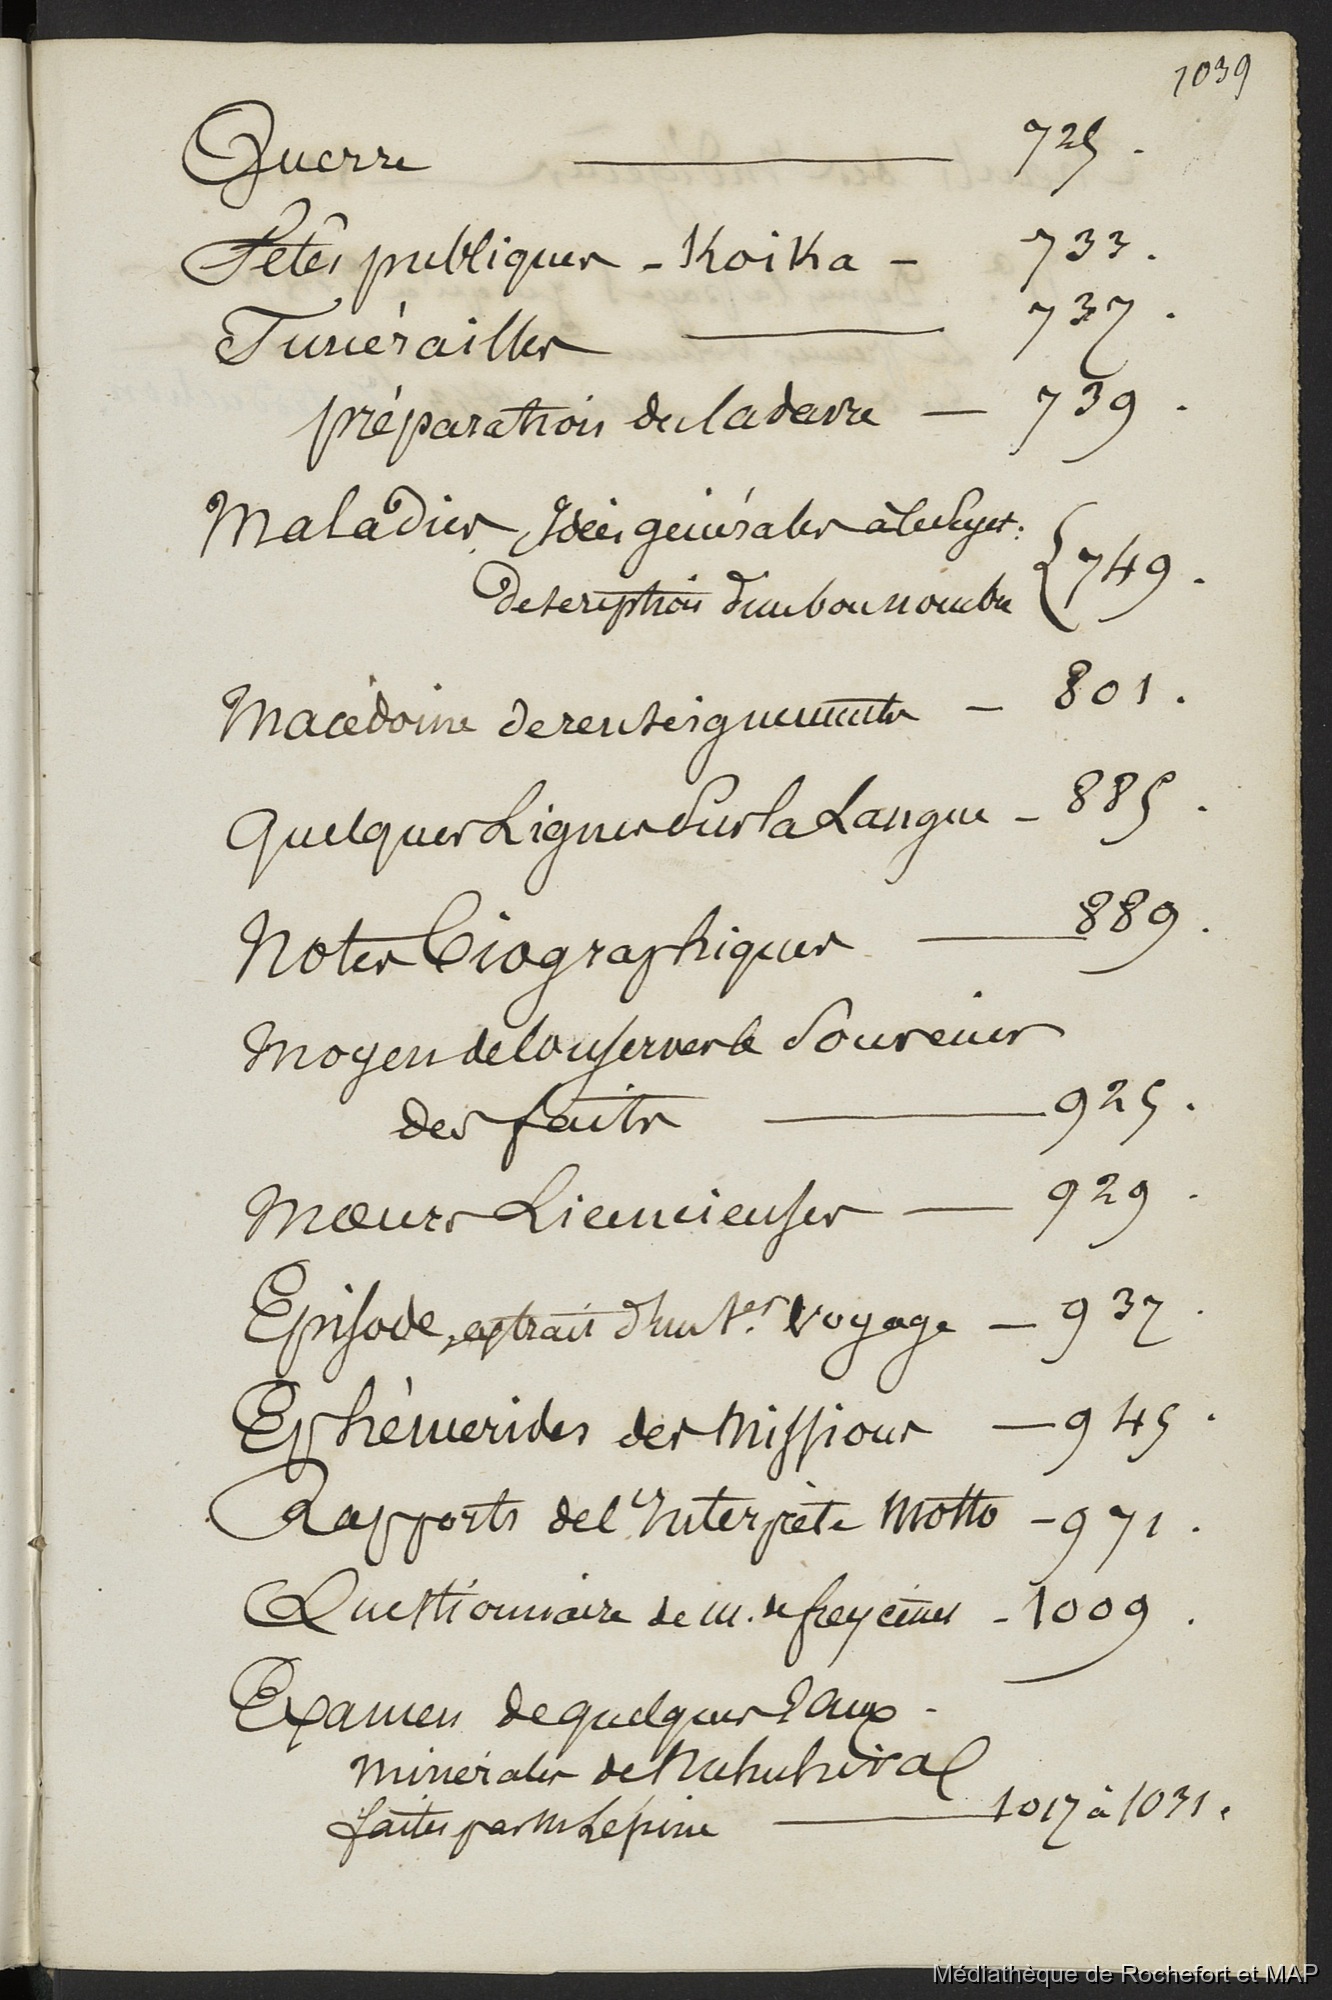 1039
Guerre ——— 725.
Fêtes publiques - Koika - 733.
Funérailles ——— 737.
préparation du Cadavre — 739.
Maladies, Idées générales à le sujet.
Description d'un bon nombre { 749.
Macédoine de renseignements — 801.
Quelques Lignes sur la Langue - 885.
Notes biographiques ——— 889.
Moyen de Conserver le Souvenir
des faits ——— 925.
Mœurs Licencieuses — 929.
Episode, extrait d'un 1er. Voyage — 937.
Ephémerides des Missions — 945.
Rapports de l'Interprète Motto - 971.
Questionnaire de m. de freycinet - 1009.
Examen de quelques Eaux -
minérales de Nukuhiva
faites par M Lépine ——— 1017 à 1031.
Médiathèque de Rochefort et MAP